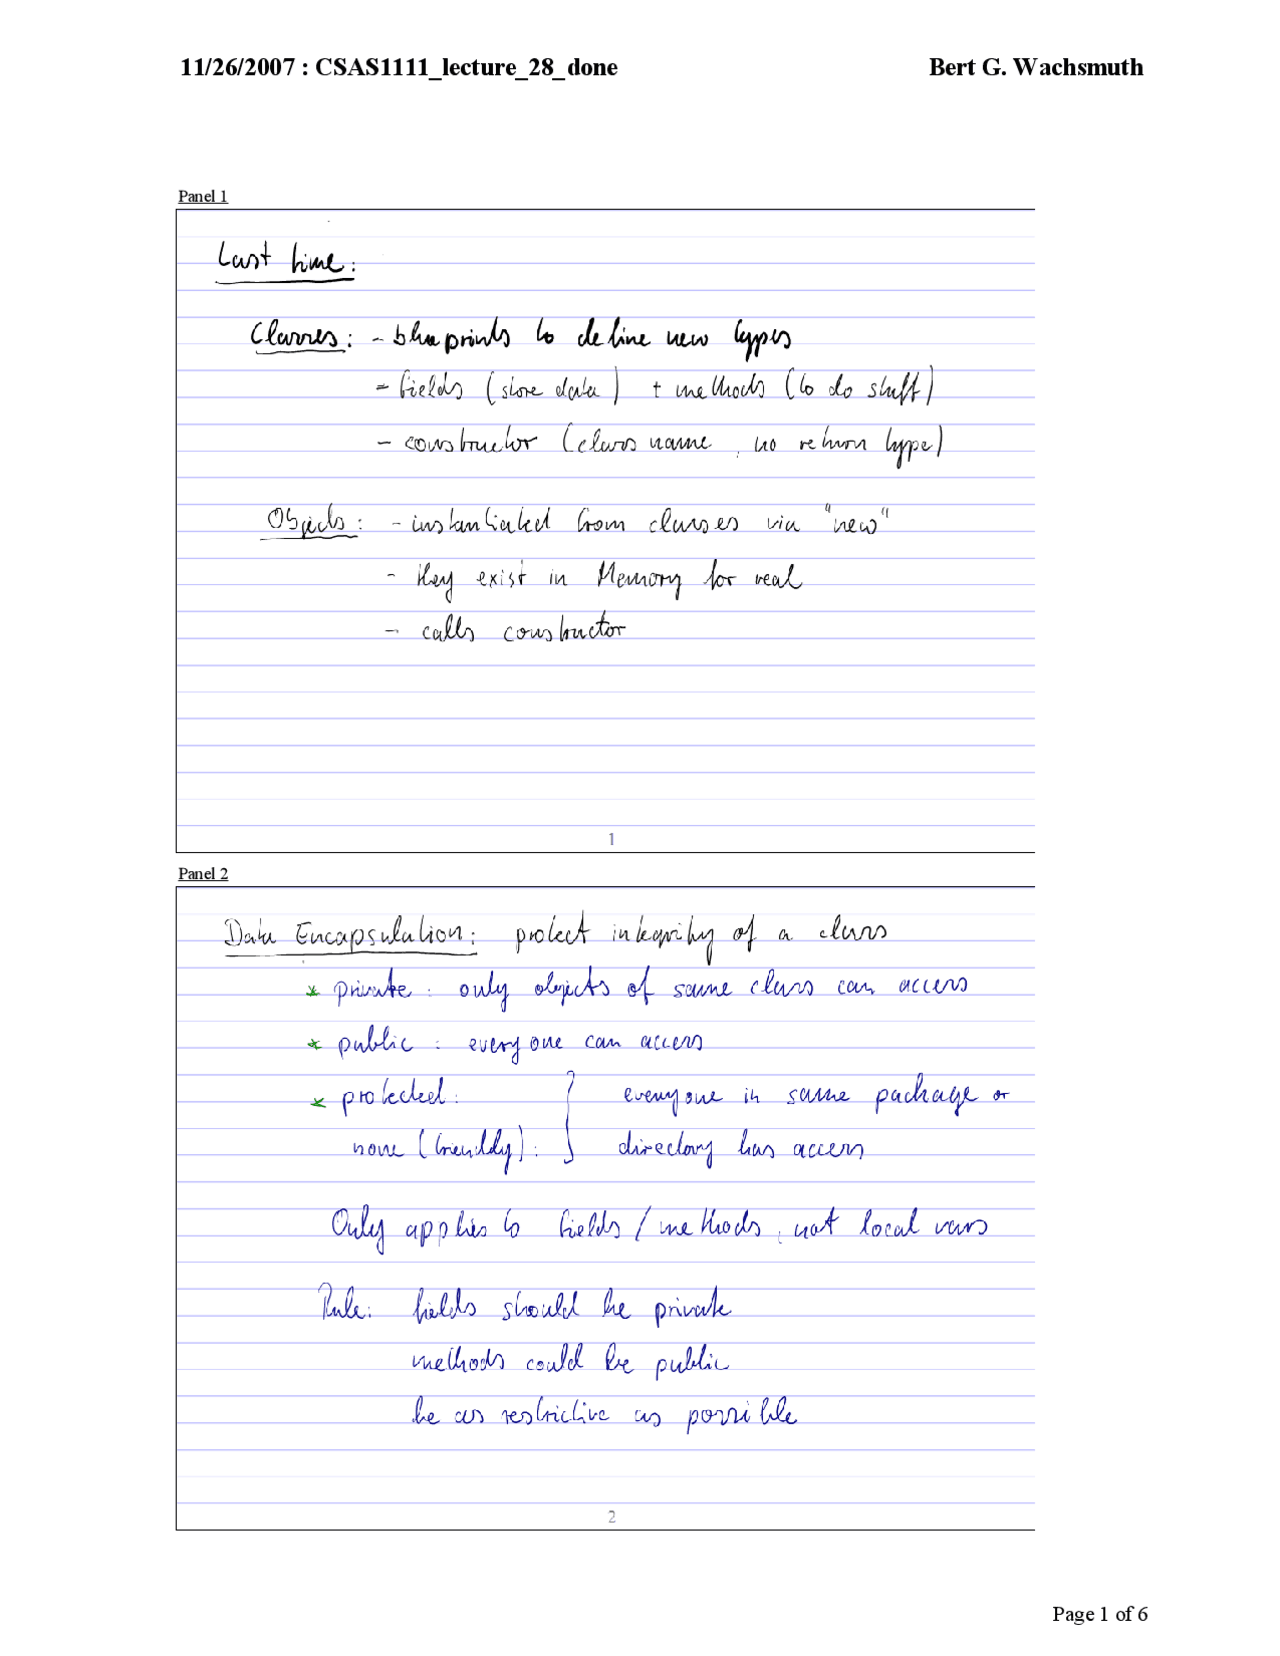 11/26/2007 : CSAS1111_lecture_28_done Bert G. Wachsmuth
Panel 1
Last time:
Classes: - blueprints to define new types
- fields (store data) + methods (to do stuff)
- constructor (class name, no return type)
Objects: - instantiated from classes via "new"
- they exist in Memory for real
- calls constructor
1
Panel 2
Data Encapsulation: protect integrity of a class
* private: only objects of same class can access
* public: everyone can access
* protected: } everyone in same package or
none (friendly): directory has access
Only applies to fields / methods, not local vars
Rule: fields should be private
methods could be public
be as restrictive as possible
2
Page 1 of 6